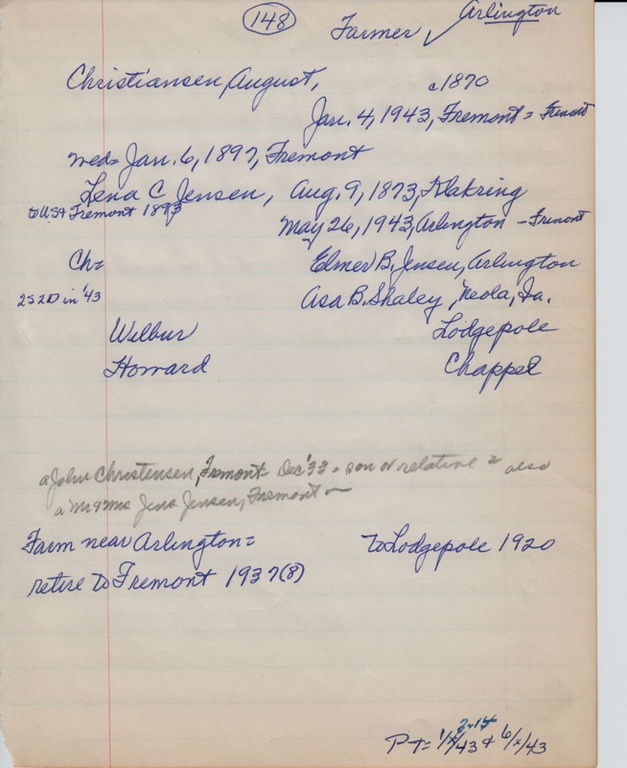 148
Farmer ✓ Arlington
Christiansen, August, c1870
Jan. 4, 1943, Fremont = Fremont
wed= Jan. 6, 1897, Fremont
Lena C Jensen, Aug. 9, 1873, Klakring
to USA Fremont 1893
May 26, 1943, Arlington - Fremont
Ch= Elmer B. Jensen, Arlington
2S 2D in '43 Asa B. Shaley, Neola, Ia.
Wilbur Lodgepole
Howard Chappel
a John Christensen, Fremont Dec '33 = son or relative = also
a Mr & Mrs Jens Jensen, Fremont
Farm near Arlington = to Lodgepole 1920
retire to Fremont 1937(8)
2-14
PT= 1/x/43 & 6/x/43